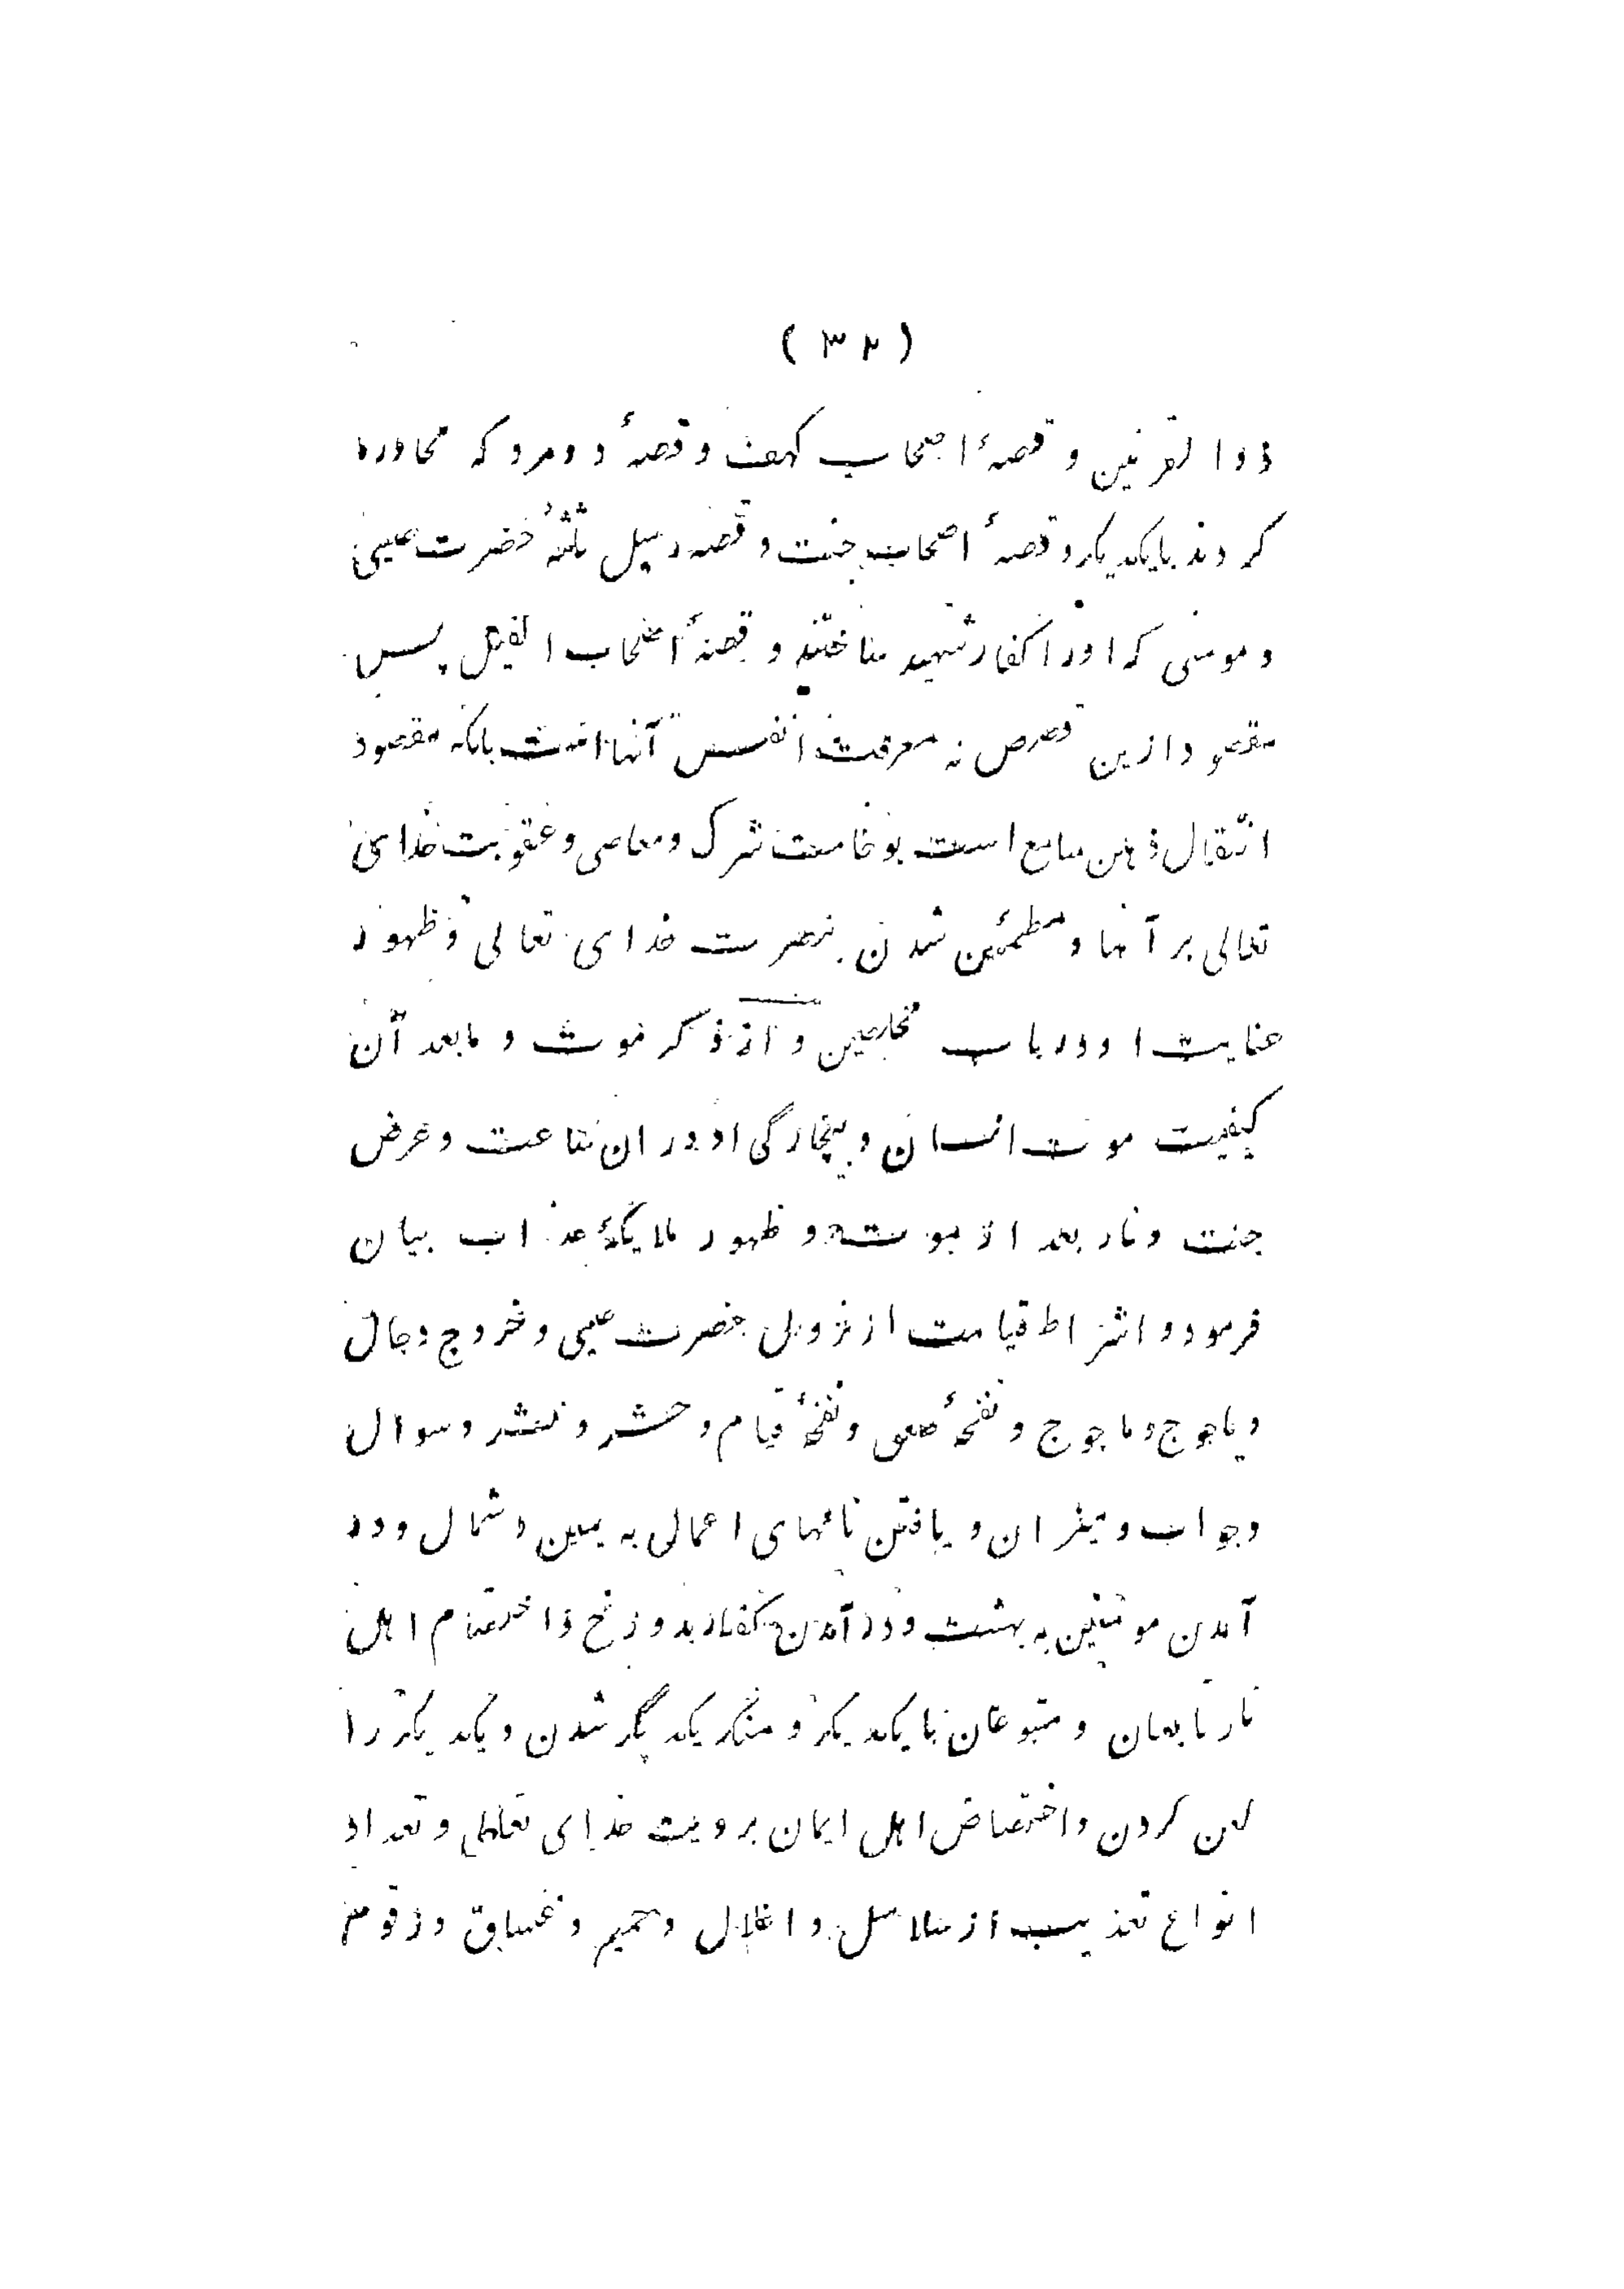 ( ٣٢ )
ذوالقرنین و قصهٔ اصحاب کهف و قصهٔ دو مرد که محاوره
کردند بایکدیگر و قصهٔ اصحاب جنت و قصه رسل ثلثهٔ حضرت عیسی
و مومنی که او را کفار شهید ساختند و قصهٔ اصحاب الفیل پس
مقصود ازین قصص نه معرفت انفس آنها است بلکه مقصود
انتقال ذهن سامع است بوخامت شرک و معاصی و عقوبت خدای
تعالی بر آنها و مطمئین شدن بنصرت خدای تعالی و ظهور
عنایت او در باب مخلصین و از ذکر موت و مابعد آن
کیفیت موت انسان و بیچارگی او در ان ساعت و عرض
جنت و نار بعد از موت و ظهور ملایکهٔ عذاب بیان
فرمود و اشراط قیامت از نزول حضرت عیسی و خروج دجال
و یاجوج و ماجوج و نفخهٔ صعق و نفخهٔ قیام و حشر و نشر و سوال
و جواب و میزان و یافتن نامهای اعمال به یمین و شمال و در
آمدن مومنین به بهشت و در آمدن کفار بدوزخ و اختصام اهل
نار تابعان و متبوعان بایکدیگر و منکر یکدیگر شدن و یکدیگر را
لعن کردن و اختصاص اهل ایمان برویت خدای تعالی و تعداد
انواع تعذیب از سلاسل و اغلال و حمیم و غساق و زقوم